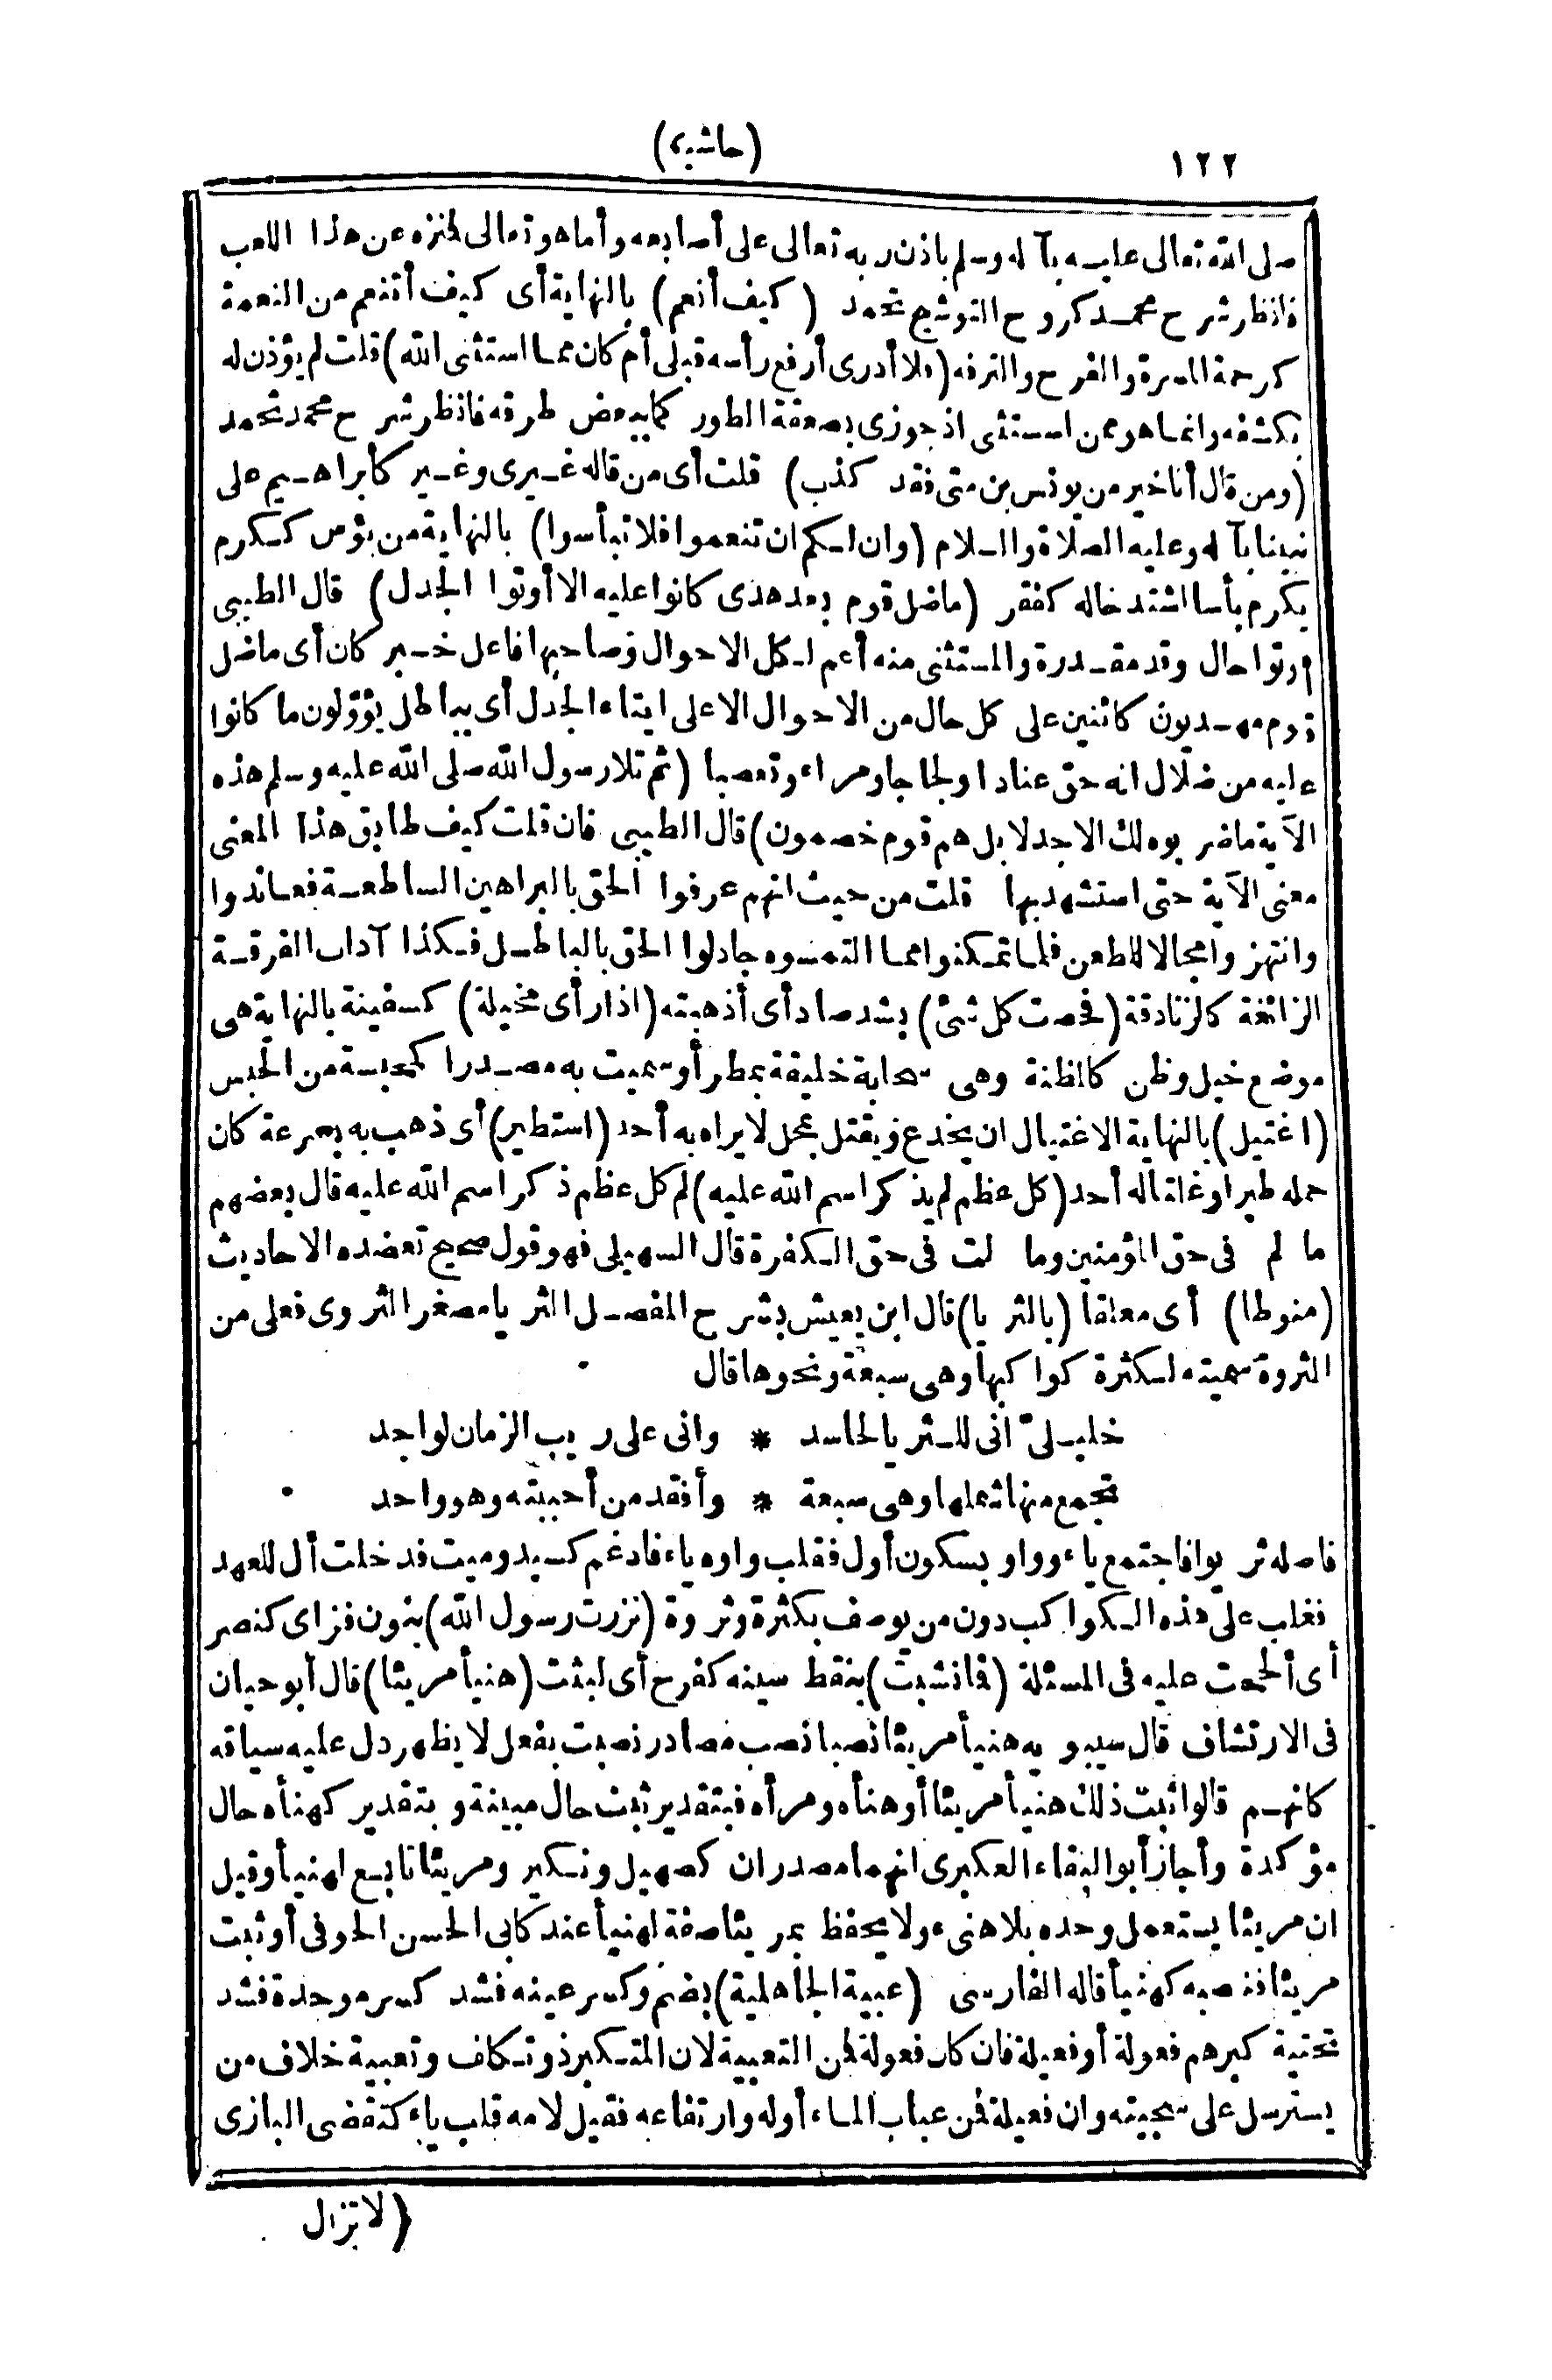 ١٢٢ (حاشية)
صلى الله تعالى عليه بآله وسلم باذن ربه تعالى على أصابعه وأما هو تعالى فمنزه عن هذا اللعب
فانظر شرح محمد كروح التوشيح تحمد (كيف أنعم) بالنهاية أى كيف أتنعم من النعمة
كرحمة المسرة والفرح والترفه (فلا أدرى أرفع رأسه قبلى أم كان مما استثنى الله) قلت لم يؤذن له
بكشفه وانما هو ممن استثنى اذ جوزى بصعقة الطور كما ببعض طرقه فانظر شرح محمد تحمد
(ومن قال أنا خير من يونس بن متى فقد كذب) قلت أى من قاله غيرى وغير كأبراهيم على
نبينا بآله وعليه الصلاة والسلام (وان لكم ان تنعموا فلا تبأسوا) بالنهاية من بؤس ككرم
يكرم بأسا اشتد حاله كفقر (ماضل قوم بعد هدى كانوا عليه الا أوتوا الجدل) قال الطيبى
أوتوا حال وقد مقدرة والمستثنى منه أعم لكل الاحوال وصاحبها فاعل خبر كان أى ماضل
قوم مهديون كائنين على كل حال من الاحوال الا على ايتاء الجدل أى بباطل يؤولون ما كانوا
عليه من ضلال انه حق عنادا ولجاجا ومراء وتعصبا (ثم تلا رسول الله صلى الله عليه وسلم هذه
الآية ماضربوه لك الا جدلا بل هم قوم خصمون) قال الطيبى فان قلت كيف طابق هذا المعنى
معنى الآية حتى استشهد بها قلت من حيث انهم عرفوا الحق بالبراهين الساطعة فعاندوا
وانتهزوا مجالا للطعن فلما تمكنوا مما التمسوه جادلوا الحق بالباطل فكذا آداب الفرقة
الزائغة كالزنادقة (فحصت كل شئ) بشد صاد أى أذهبته (اذا رأى مخيلة) كسفينة بالنهاية هى
موضع خيل وظن كالمظنة وهى سحابة خليقة بمطر أو سميت به مصدرا كمحبسة من الحبس
(اغتيل) بالنهاية الاغتيال ان يخدع ويقتل بمحل لا يراه به أحد (استطير) أى ذهب به بسرعة كان
حمله طير او غاله أحد (كل عظم لم يذكر اسم الله عليه) لم كل عظم ذكر اسم الله عليه قال بعضهم
ما لم فى حق المؤمنين وما لت فى حق الكفرة قال السهيلى فهو قول صحيح تعضده الاحاديث
(منوطا) أى معلقا (بالثريا) قال ابن يعيش بشرح المفصل الثريا مصغر الثروى فعلى من
الثروة سميته لكثرة كواكبها وهى سبعة ونحوها قال
خليلىّ انى للثريا لحاسد * وانى على ريب الزمان لواجد
تجمع منها شملها وهى سبعة * وأفقد من أحببته وهو واحد
فاصله ثريوا فاجتمع ياء وواو بسكون أول فقلب واوه ياء فادغم كسيد وميت فدخلت أل للعهد
فغلب على هذه الكواكب دون من يوصف بكثرة وثروة (نزرت رسول الله) بنون فزاى كنصر
أى ألححت عليه فى المسئلة (فانشبت) بنقط سينه كفرح أى لبثت (هنيأ مريئا) قال أبو حيان
فى الارتشاف قال سيبويه هنيأ مريئا نصبا نصب مصادر نصبت بفعل لا يظهر دل عليه سياقه
كانهم قالوا ثبت ذلك هنيأ مريئا أو هنأه ومرأه فبتقدير ثبت حال مبينة وبتقدير كهنأه حال
مؤكدة وأجاز أبو البقاء العكبرى انهما مصدران كصهيل ونكير ومريئا تابع لهنيأ وقيل
ان مريئا يستعمل وحده بلا هنىء ولا يحفظ بمريئا صفة لهنيأ عند كابى الحسن الحوفى أو ثبت
مريئا فنصبه كهنيأ قاله الفارسى (عبية الجاهلية) بضم وكسر عينه فشد كسر موحدة فشد
تحتية كبرهم فعولة أو فعيلة فان كان فعولة فمن التعبية لان المتكبر ذو تكلف وتعبية خلاف من
يسترسل على سجيته وان فعيلة فمن عباب الماء أوله وارتفاعه فقيل لامه قلب ياء كتقضى البازى
(لاتزال